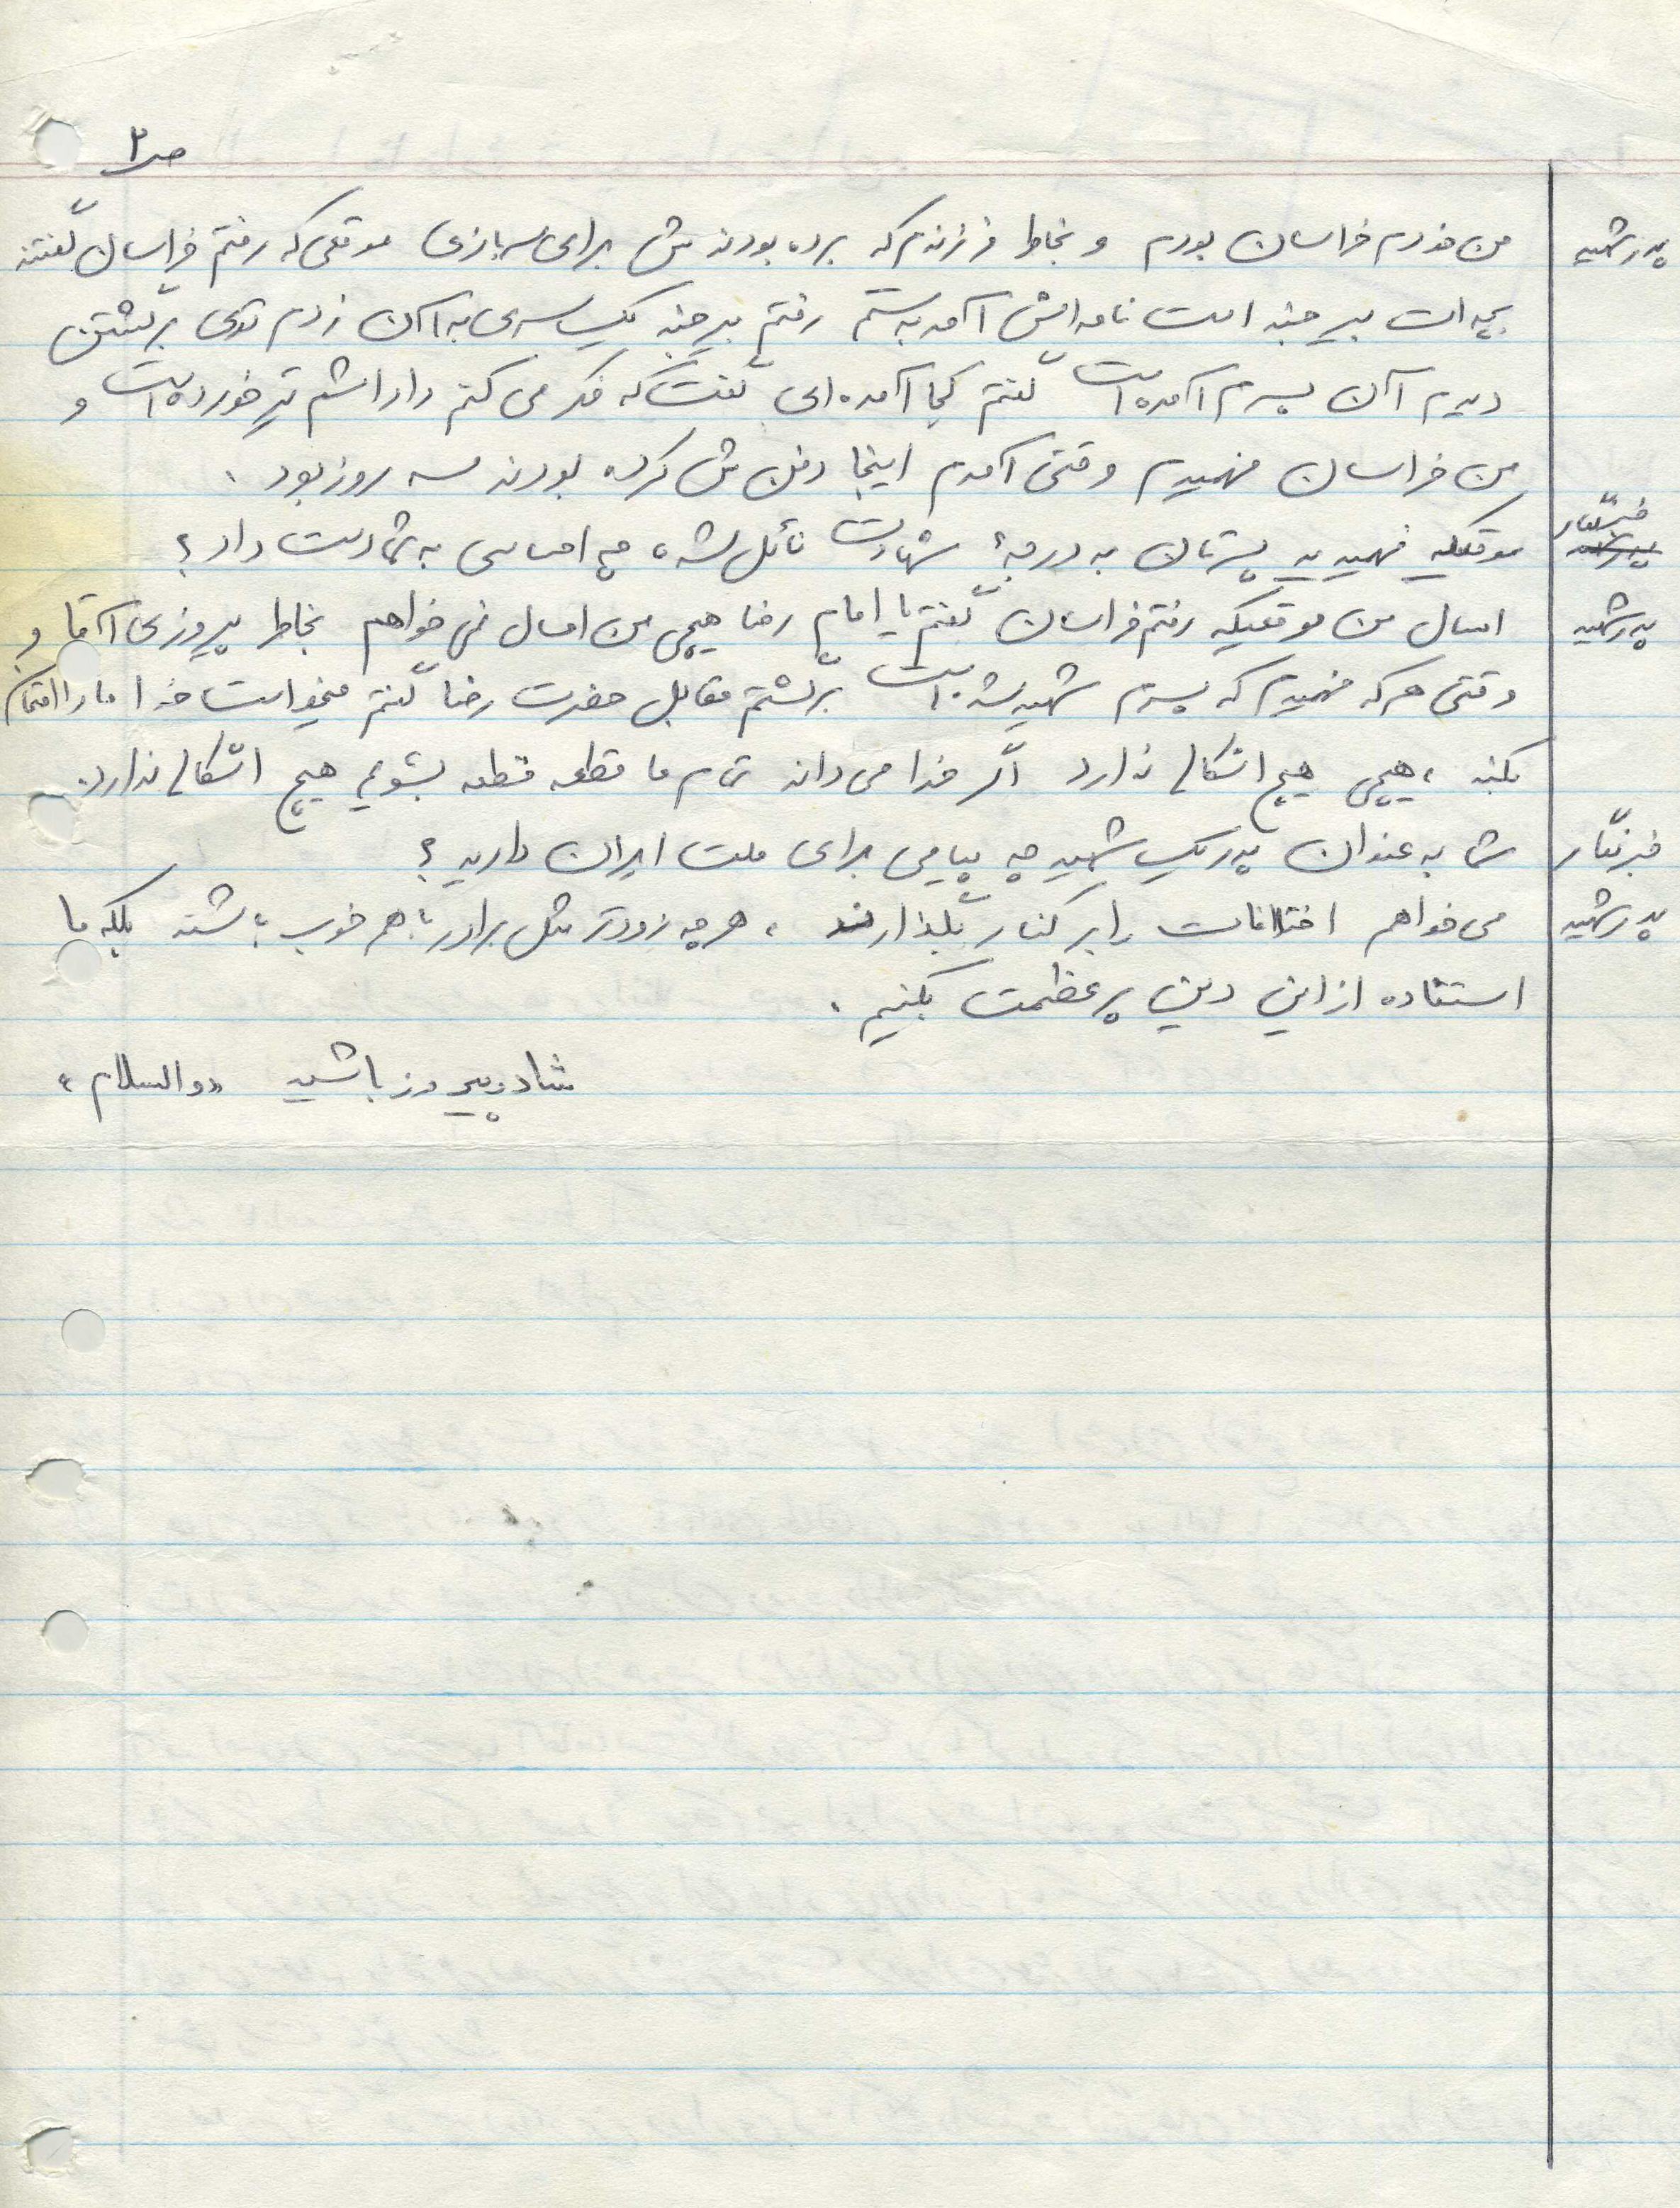 ص ۲
پدر شهید من خودم خراسان بودم و بخاطر فرزندم که برده بودندش برای سربازی موقعی که رفتم خراسان گفتند
بچه‌ات بیرجند است نامه‌اش آمد به دستم رفتم بیرجند یک سری به آن زدم توی برگشتن
دیدم آن پسرم آمده است گفتم کجا آمده‌ای گفت که فکر می کنم داداشم تیر خورده است و
من خراسان فهمیدم وقتی آمدم اینجا دفن ش کرده بودند سه روز بود .
خبرنگار موقعیکه فهمیدید پسرتان به درجهٔ شهادت نائل شده چه احساسی به شما دست داد ؟
پدر شهید امسال من موقعیکه رفتم خراسان گفتم یا امام رضا هیچی من امسال نمی خواهم بخاطر پیروزی آقا و
وقتی هم که فهمیدم که پسرم شهید شده است برگشتم مقابل حضرت رضا گفتم میخواست خدا ما را امتحان
بکند ، هیچی هیچ اشکالی ندارد اگر خدا می داند تمام ما قطعه قطعه بشویم هیچ اشکالی ندارد.
خبرنگار شما به عنوان پدر یک شهید چه پیامی برای ملت ایران دارید ؟
پدر شهید می خواهم اختلافات را بر کنار بگذارند ، هر چه زودتر مثل برادر با هم خوب باشند بلکه ما
استفاده از این دین پر عظمت بکنیم .
شاد و پیروز باشید «والسلام»